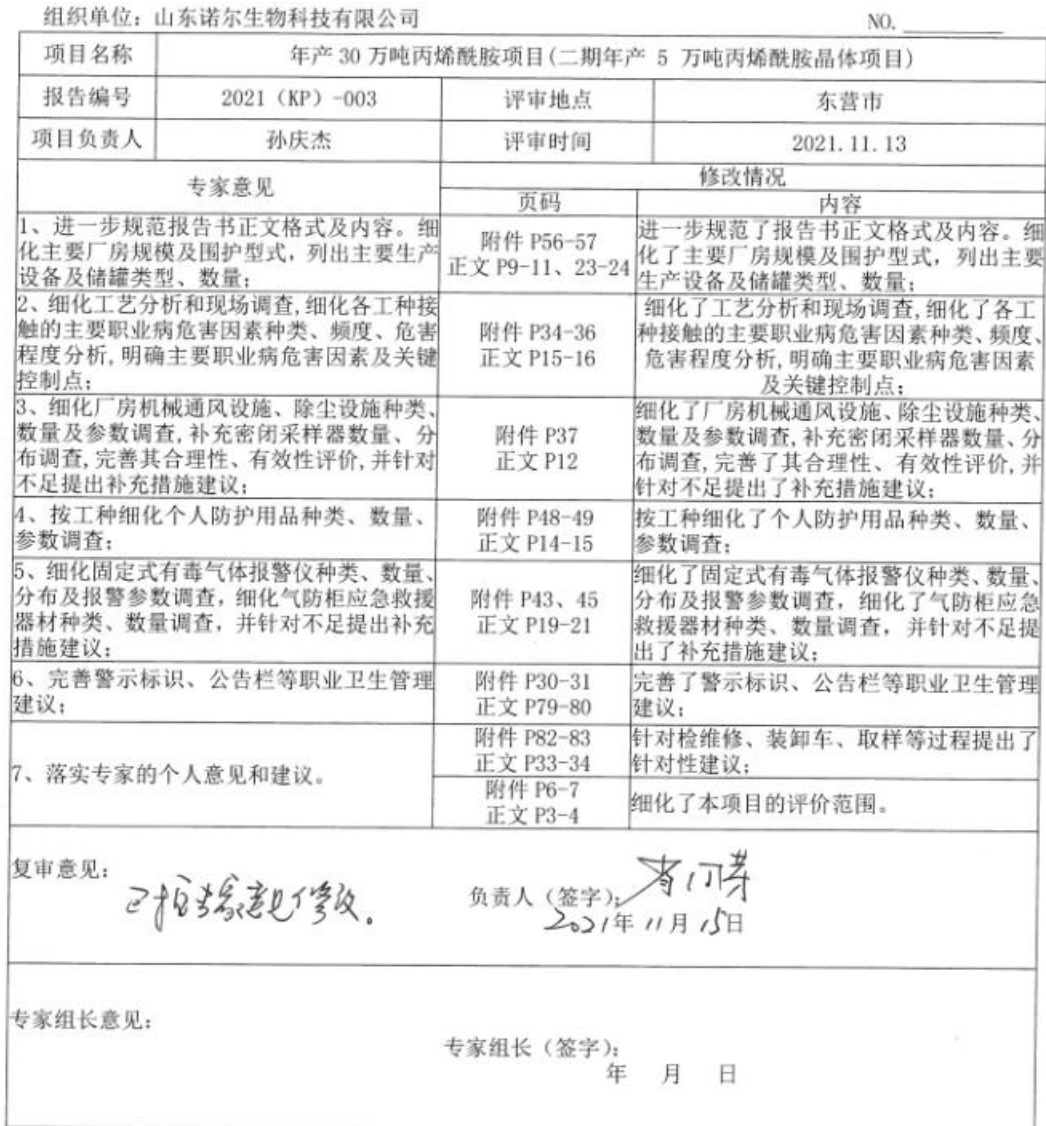 组织单位：山东诺尔生物科技有限公司
NO.
项目名称
年产 30 万吨丙烯酰胺项目(二期年产 5 万吨丙烯酰胺晶体项目)
报告编号
2021（KP）-003
评审地点
东营市
项目负责人
孙庆杰
评审时间
2021.11.13
专家意见
修改情况
页码
内容
1、进一步规范报告书正文格式及内容。细
化主要厂房规模及围护型式，列出主要生产
设备及储罐类型、数量；
附件 P56-57
正文 P9-11、23-24
进一步规范了报告书正文格式及内容。细
化了主要厂房规模及围护型式，列出主要
生产设备及储罐类型、数量；
2、细化工艺分析和现场调查,细化各工种接
触的主要职业病危害因素种类、频度、危害
程度分析,明确主要职业病危害因素及关键
控制点；
附件 P34-36
正文 P15-16
细化了工艺分析和现场调查,细化了各工
种接触的主要职业病危害因素种类、频度、
危害程度分析,明确主要职业病危害因素
及关键控制点；
3、细化厂房机械通风设施、除尘设施种类、
数量及参数调查,补充密闭采样器数量、分
布调查,完善其合理性、有效性评价,并针对
不足提出补充措施建议；
附件 P37
正文 P12
细化了厂房机械通风设施、除尘设施种类、
数量及参数调查,补充密闭采样器数量、分
布调查,完善了其合理性、有效性评价,并
针对不足提出了补充措施建议；
4、按工种细化个人防护用品种类、数量、
参数调查；
附件 P48-49
正文 P14-15
按工种细化了个人防护用品种类、数量、
参数调查；
5、细化固定式有毒气体报警仪种类、数量、
分布及报警参数调查，细化气防柜应急救援
器材种类、数量调查，并针对不足提出补充
措施建议；
附件 P43、45
正文 P19-21
细化了固定式有毒气体报警仪种类、数量、
分布及报警参数调查，细化了气防柜应急
救援器材种类、数量调查，并针对不足提
出了补充措施建议；
6、完善警示标识、公告栏等职业卫生管理
建议；
附件 P30-31
正文 P79-80
完善了警示标识、公告栏等职业卫生管理
建议；
7、落实专家的个人意见和建议。
附件 P82-83
正文 P33-34
针对检维修、装卸车、取样等过程提出了
针对性建议；
附件 P6-7
正文 P3-4
细化了本项目的评价范围。
复审意见：
已按专家意见修改。
负责人（签字）：
2021年 11月 15日
专家组长意见：
专家组长（签字）：
年 月 日